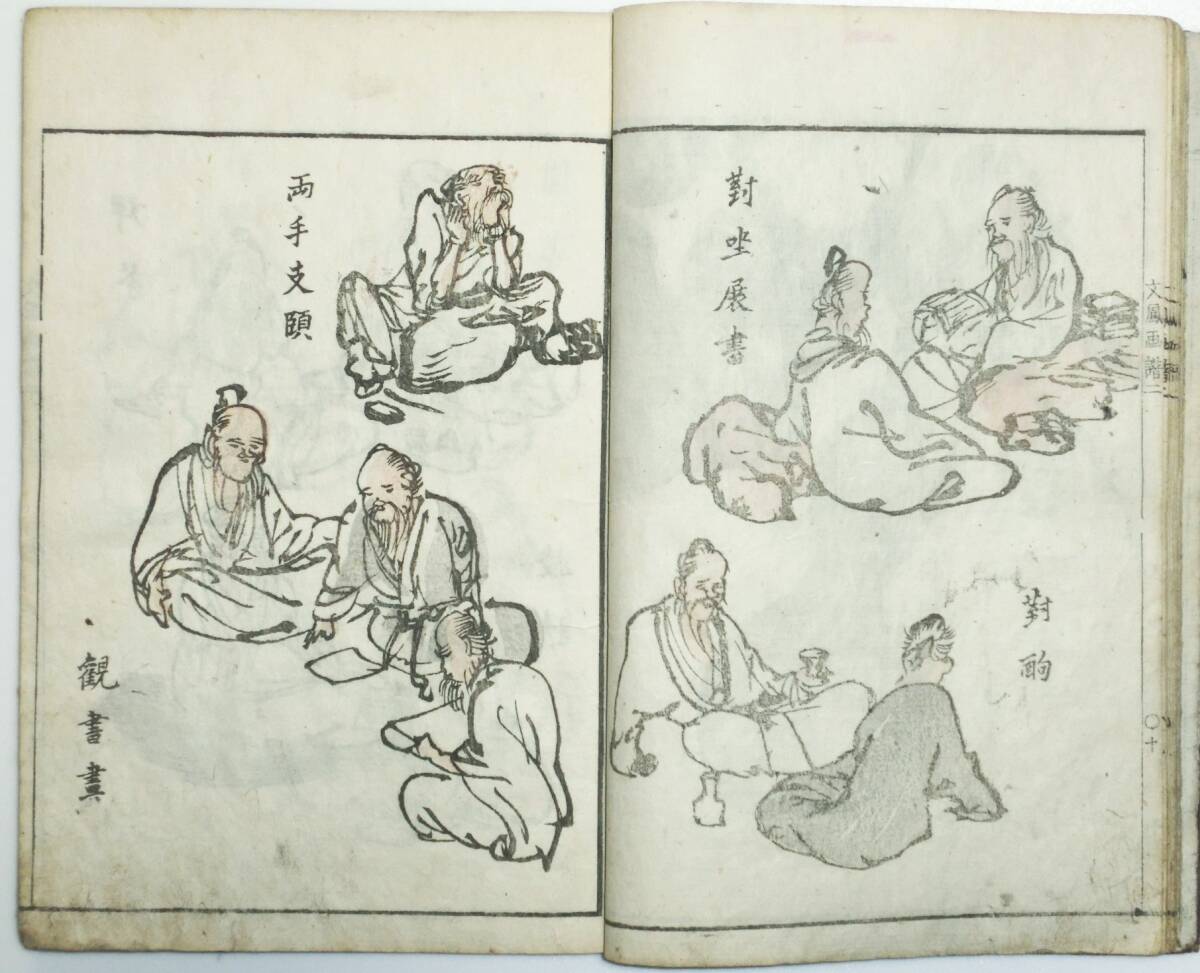 對坐展書
對酌
文鳳画譜二
〇十
両手支頤
観書畫